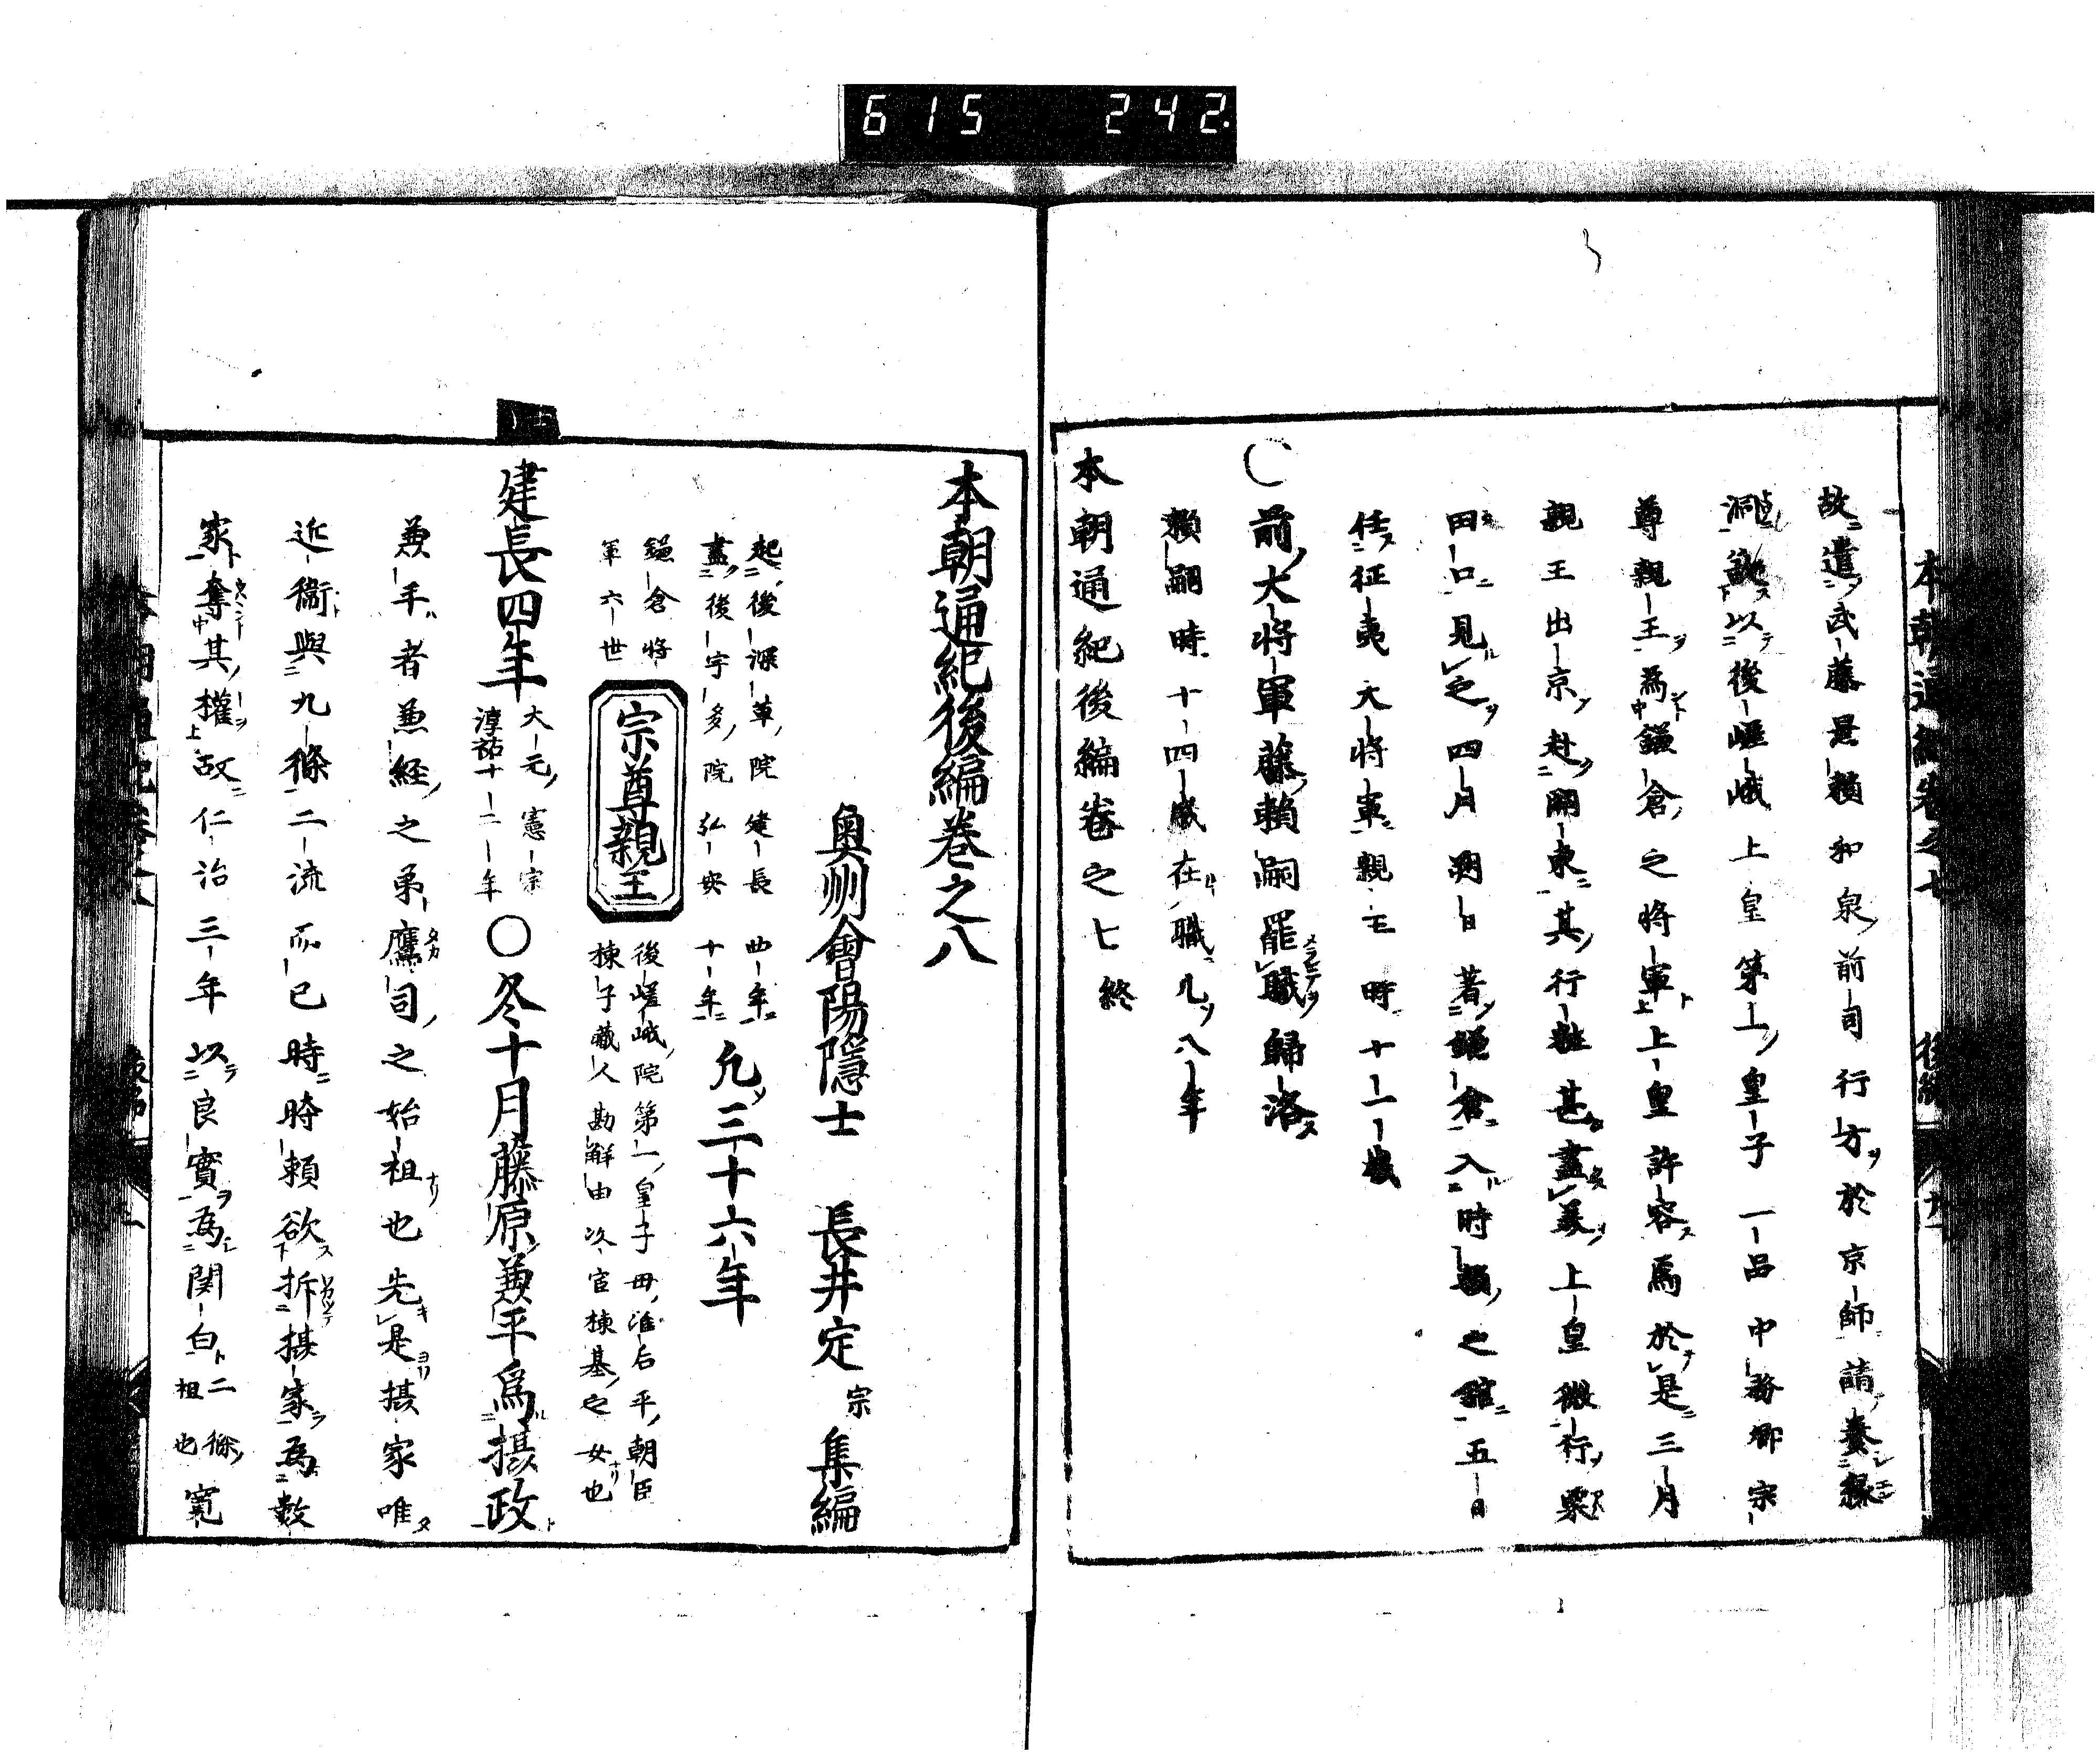 615 242
故遣武藤景頼和泉前司行方於京師請奏縁
洞欲以後嵯峨上皇第一皇子一品中務卿宗
尊親王為鎌倉之将軍上皇許容焉於是三月
親王出京赴關東其行粧甚盡美上皇微行察
田口見之四月朔日著鎌倉入時頼之館五日
任征夷大将軍親王時十一歳
前大将軍藤頼嗣罷職歸洛
頼嗣時十四歳在職凡八年
本朝通紀後編巻之七終
本朝通紀後編巻之八
奥州會陽隱士 長井定宗 集編
起後深草院建長四年
盡後宇多院弘安十年
凡三十六年
鎌倉将軍六世
宗尊親王
後嵯峨院第一皇子母准后平朝臣
棟子蔵人勘解由次官棟基之女也
建長四年 大元憲宗淳祐十二年 〇冬十月藤原兼平為摂政
兼平者兼経之弟鷹司之始祖也先是摂家唯
近衞與九條二流而已時時頼欲拆摂家為數
家奪其權故仁治三年以良實為関白二條祖也寛